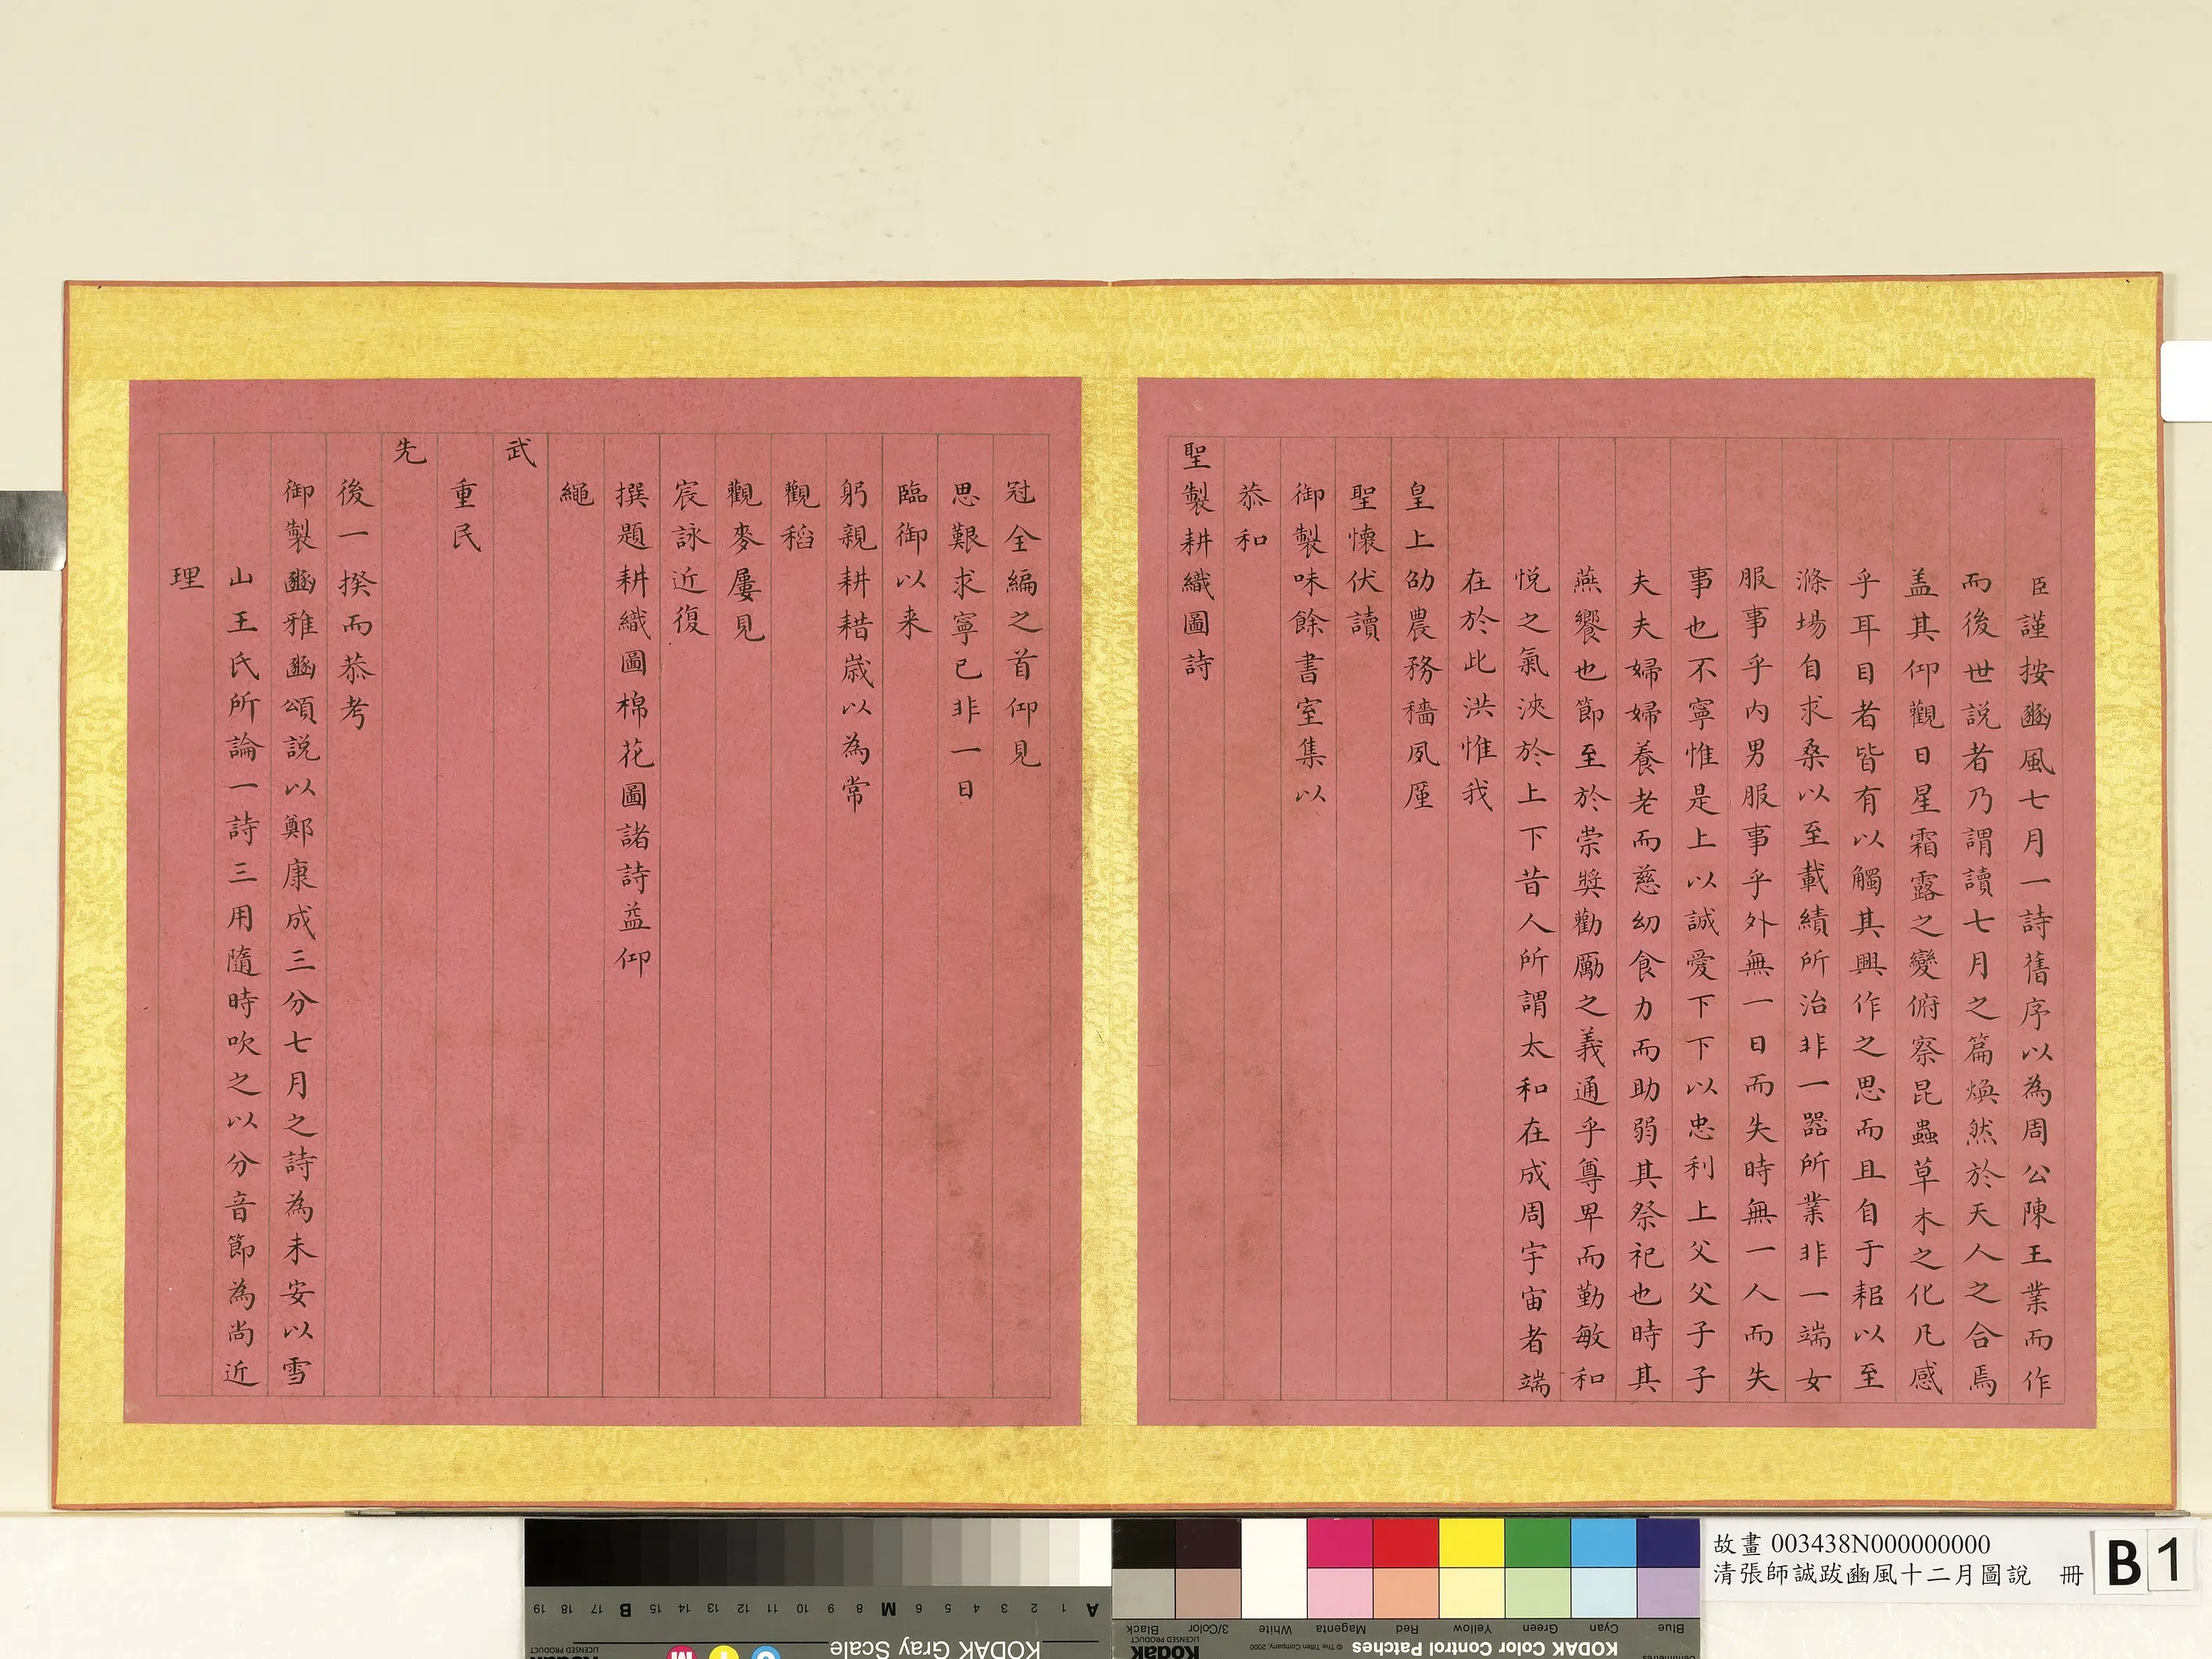 臣謹按豳風七月一詩舊序以為周公陳王業而作
而後世説者乃謂讀七月之篇煥然於天人之合焉
盖其仰觀日星霜露之變俯察昆蟲草木之化凡感
乎耳目者皆有以觸其興作之思而且自于耜以至
滌場自求桑以至載績所治非一器所業非一端女
服事乎内男服事乎外無一日而失時無一人而失
事也不寧惟是上以誠愛下下以忠利上父父子子
夫夫婦婦養老而慈幼食力而助弱其祭祀也時其
燕饗也節至於崇奬勸勵之義通乎尊卑而勤敏和
悦之氣浹於上下昔人所謂太和在成周宇宙者端
在於此洪惟我
皇上劭農務穡夙厪
聖懷伏讀
御製味餘書室集以
恭和
聖製耕織圖詩
冠全編之首仰見
思艱求寧已非一日
臨御以来
躬親耕耤嵗以為常
觀稻
觀麥屢見
宸詠近復
撰題耕織圖棉花圖諸詩益仰
繩
武
重民
先
後一揆而恭考
御製豳雅豳頌説以鄭康成三分七月之詩為未安以雪
山王氏所論一詩三用隨時吹之以分音節為尚近
理
故畫 003438N000000000
清張師誠跋豳風十二月圖說 冊
B 1
A 1 2 3 4 5 6 M 8 9 10 11 12 13 14 15 B 17 18 19
KODAK Gray Scale
Blue Cyan Green Yellow Red Magenta White 3/Color Black
KODAK Color Control Patches © The Tiffen Company, 2000
Kodak
LICENSED PRODUCT